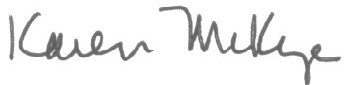 Karen McKye